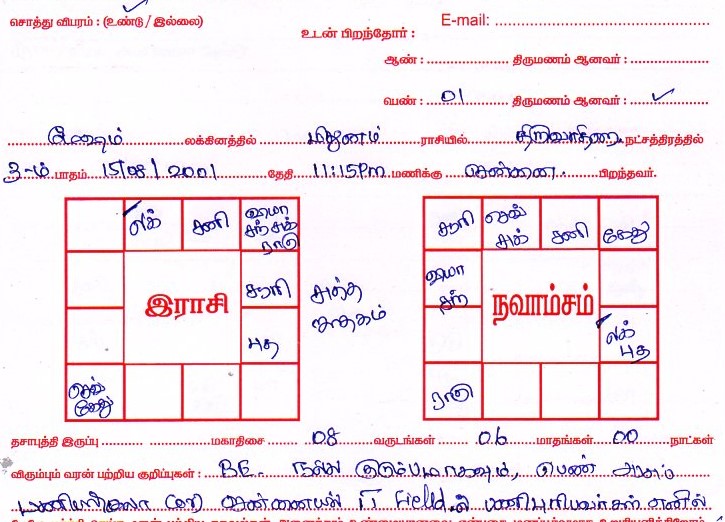 சொத்து விபரம் : (உண்டு / இல்லை)
E-mail:
உடன் பிறந்தோர் :
ஆண் : திருமணம் ஆனவர் :
பெண் : 01 திருமணம் ஆனவர் : ✓
மேஷம் லக்கினத்தில் மிதுனம் ராசியில் திருவாதிரை நட்சத்திரத்தில்
3-ம் பாதம் 15/08/2001 தேதி 11:15Pm மணிக்கு சென்னை பிறந்தவர்.
லக் சனி குரு சந் சுக் ராகு
சூரி
புத
செவ் கேது
இராசி
சுத்த ஜாதகம்
சூரி செவ் சுக் சனி கேது
குரு சந்
லக் புத
ராகு
நவாம்சம்
தசாபுத்தி இருப்பு மகாதிசை 08 வருடங்கள் 06 மாதங்கள் 00 நாட்கள்
விரும்பும் வரன் பற்றிய குறிப்புகள் : BE. நல்ல குடும்பமாகவும், பெண்
சென்னையில் IT Field ல் பணிபுரியவர்கள் எனில்